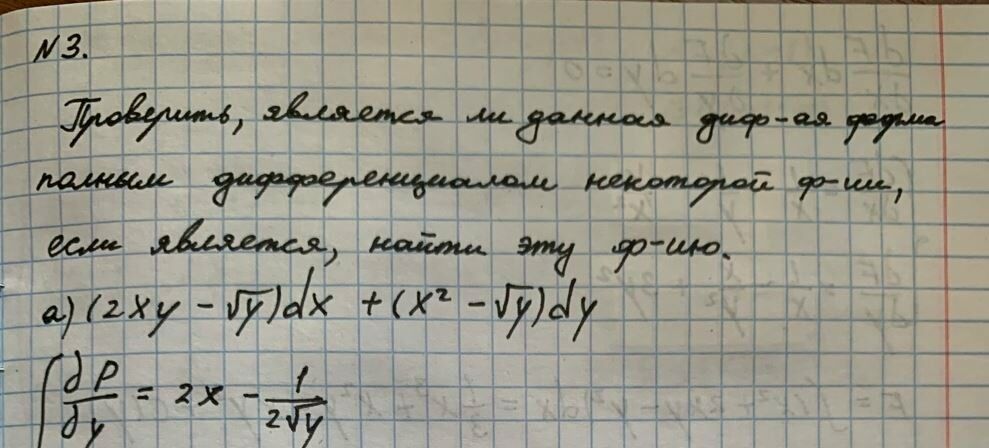 N 3.
Проверить, является ли данная диф-ая форма
полным дифференциалом некоторой ф-ии,
если является, найти эту ф-ию.
а) (2xy - √y)dx + (x² - √y)dy
∂P/∂y = 2x - 1/(2√y)